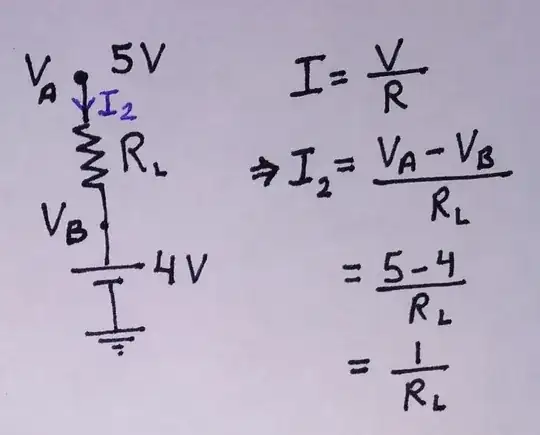 V_A 5V
I_2
R_L
V_B
4V
I = V/R
⇒ I_2 = (V_A - V_B)/R_L
= (5-4)/R_L
= 1/R_L